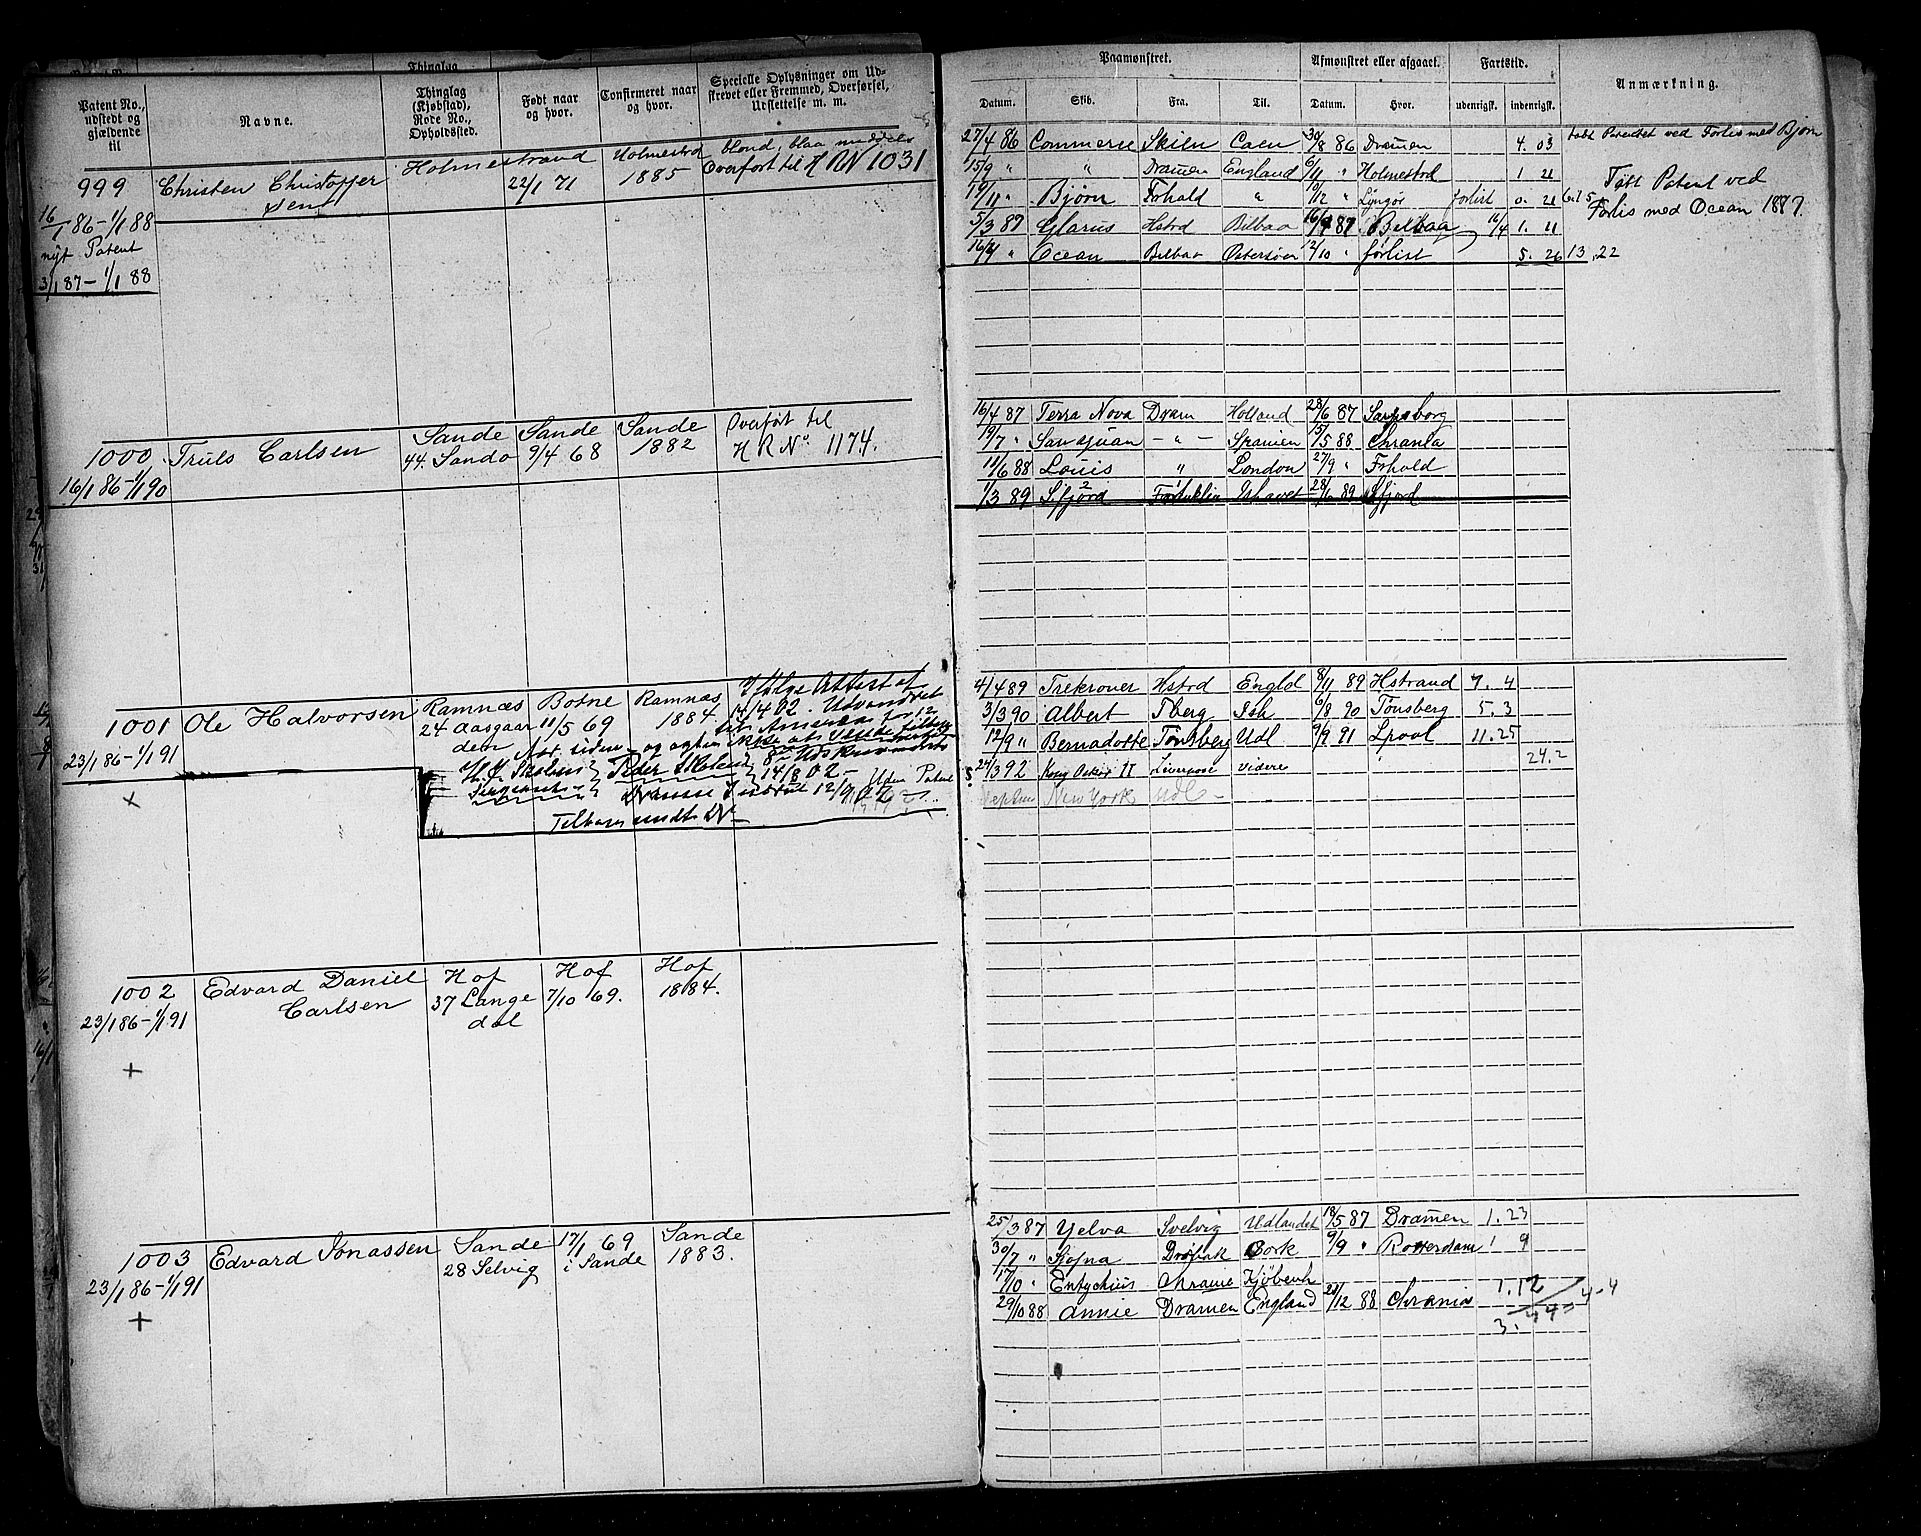 Patent No., udstedt og gjældende til
Navne.
Thinglag
Thinglag (Kjøbstad), Rode No., Opholdssted.
Født naar og hvor.
Confirmeret naar og hvor.
Specielle Oplysninger om Udskrevet eller Fremmed, Overførsel, Udslettelse m. m.
999 Christen Christoffersen Holmestrand 22/1 71 Holmestrd 1885 blond, blaa
Overført til RN 1031
16/1 86 – 1/1 88
nyt Patent
3/1 87 – 1/1 88
1000 Truls Carlsen Sande 44. Sando Sande 9/4 68 Sande 1882 Overført til
H R No. 1174.
16/1 86 – 1/1 90
1001 Ole Halvorsen Ramnæs 24 Aasgaarden Botne 11/5 69 Ramnæs 1884. Ifølge Attest af
14/4 02. Udvandret
til Amerika for 12
23/1 86 – 1/1 91
Peder
14/8 02 –
Uden Patent
12/9 02
1002 Edvard Daniel Carlsen Hof 37 Langedal Hof 7/10 69. Hof 1884.
23/1 86 – 1/1 91
+
1003 Edvard Jonassen Sande 28 Selvig 17/1 69 i Sande Sande 1883.
23/1 86 – 1/1 91
+
Paamønstret.
Afmønstret eller afgaaet.
Fartstid.
Anmærkning.
Datum. Skib. Fra. Til. Datum. Hvor. udenrigsk. indenrigsk.
27/4 86 Commerse Skien Caen 30/8 86 Dramen 4. 03 tabt Patentet ved Forlis med Bjørn
15/9 " " Dramen England 6/11 " Holmestrd 1 21
19/11 " Bjørn Frhald " 10/12 " Lyngør forlist 0. 21 6.15
Tabt Patent ved
Forlis med Ocean 1887.
5/3 87 Glarus Hstrd Bilbao 16/4 87 Bilbao 16/4 1. 11
16/4 " Ocean Bilbao Østersøen 12/10 " forlist 5. 26 13,22
16/4 87 Terra Nova Dram Holland 28/6 87 Sarpsborg
19/7 " San Juan – " – Spanien 15/5 88 Chrania
11/6 88 Louis " London 27/9 " Frhald
1/3 89 Sfjord Ishavet 28/6 89 Sfjord
4/4 89 Trekroner Hstrd Engld 8/11 89 Hstrand 7. 4
3/3 90 Albert Tberg Ish 6/8 90 Tønsberg 5. 3
12/9 " Bernadotte Tønsberg Udl 9/9 91 Lpool 11. 25
24/3 92 Kong Oskar II Liverpool videre 24.2
New York Udl –
25/3 87 Yelva Svelvig Udlandet 18/5 87 Dramen 1. 23
30/7 " Sjofna Drøbak Cork 9/9 " Rotterdam 1 9
17/10 " Entychius Chranie Kjøbenh
29/10 88 Annie Dramen England 24/12 88 Chrania
1. 12
4-4
3. 44